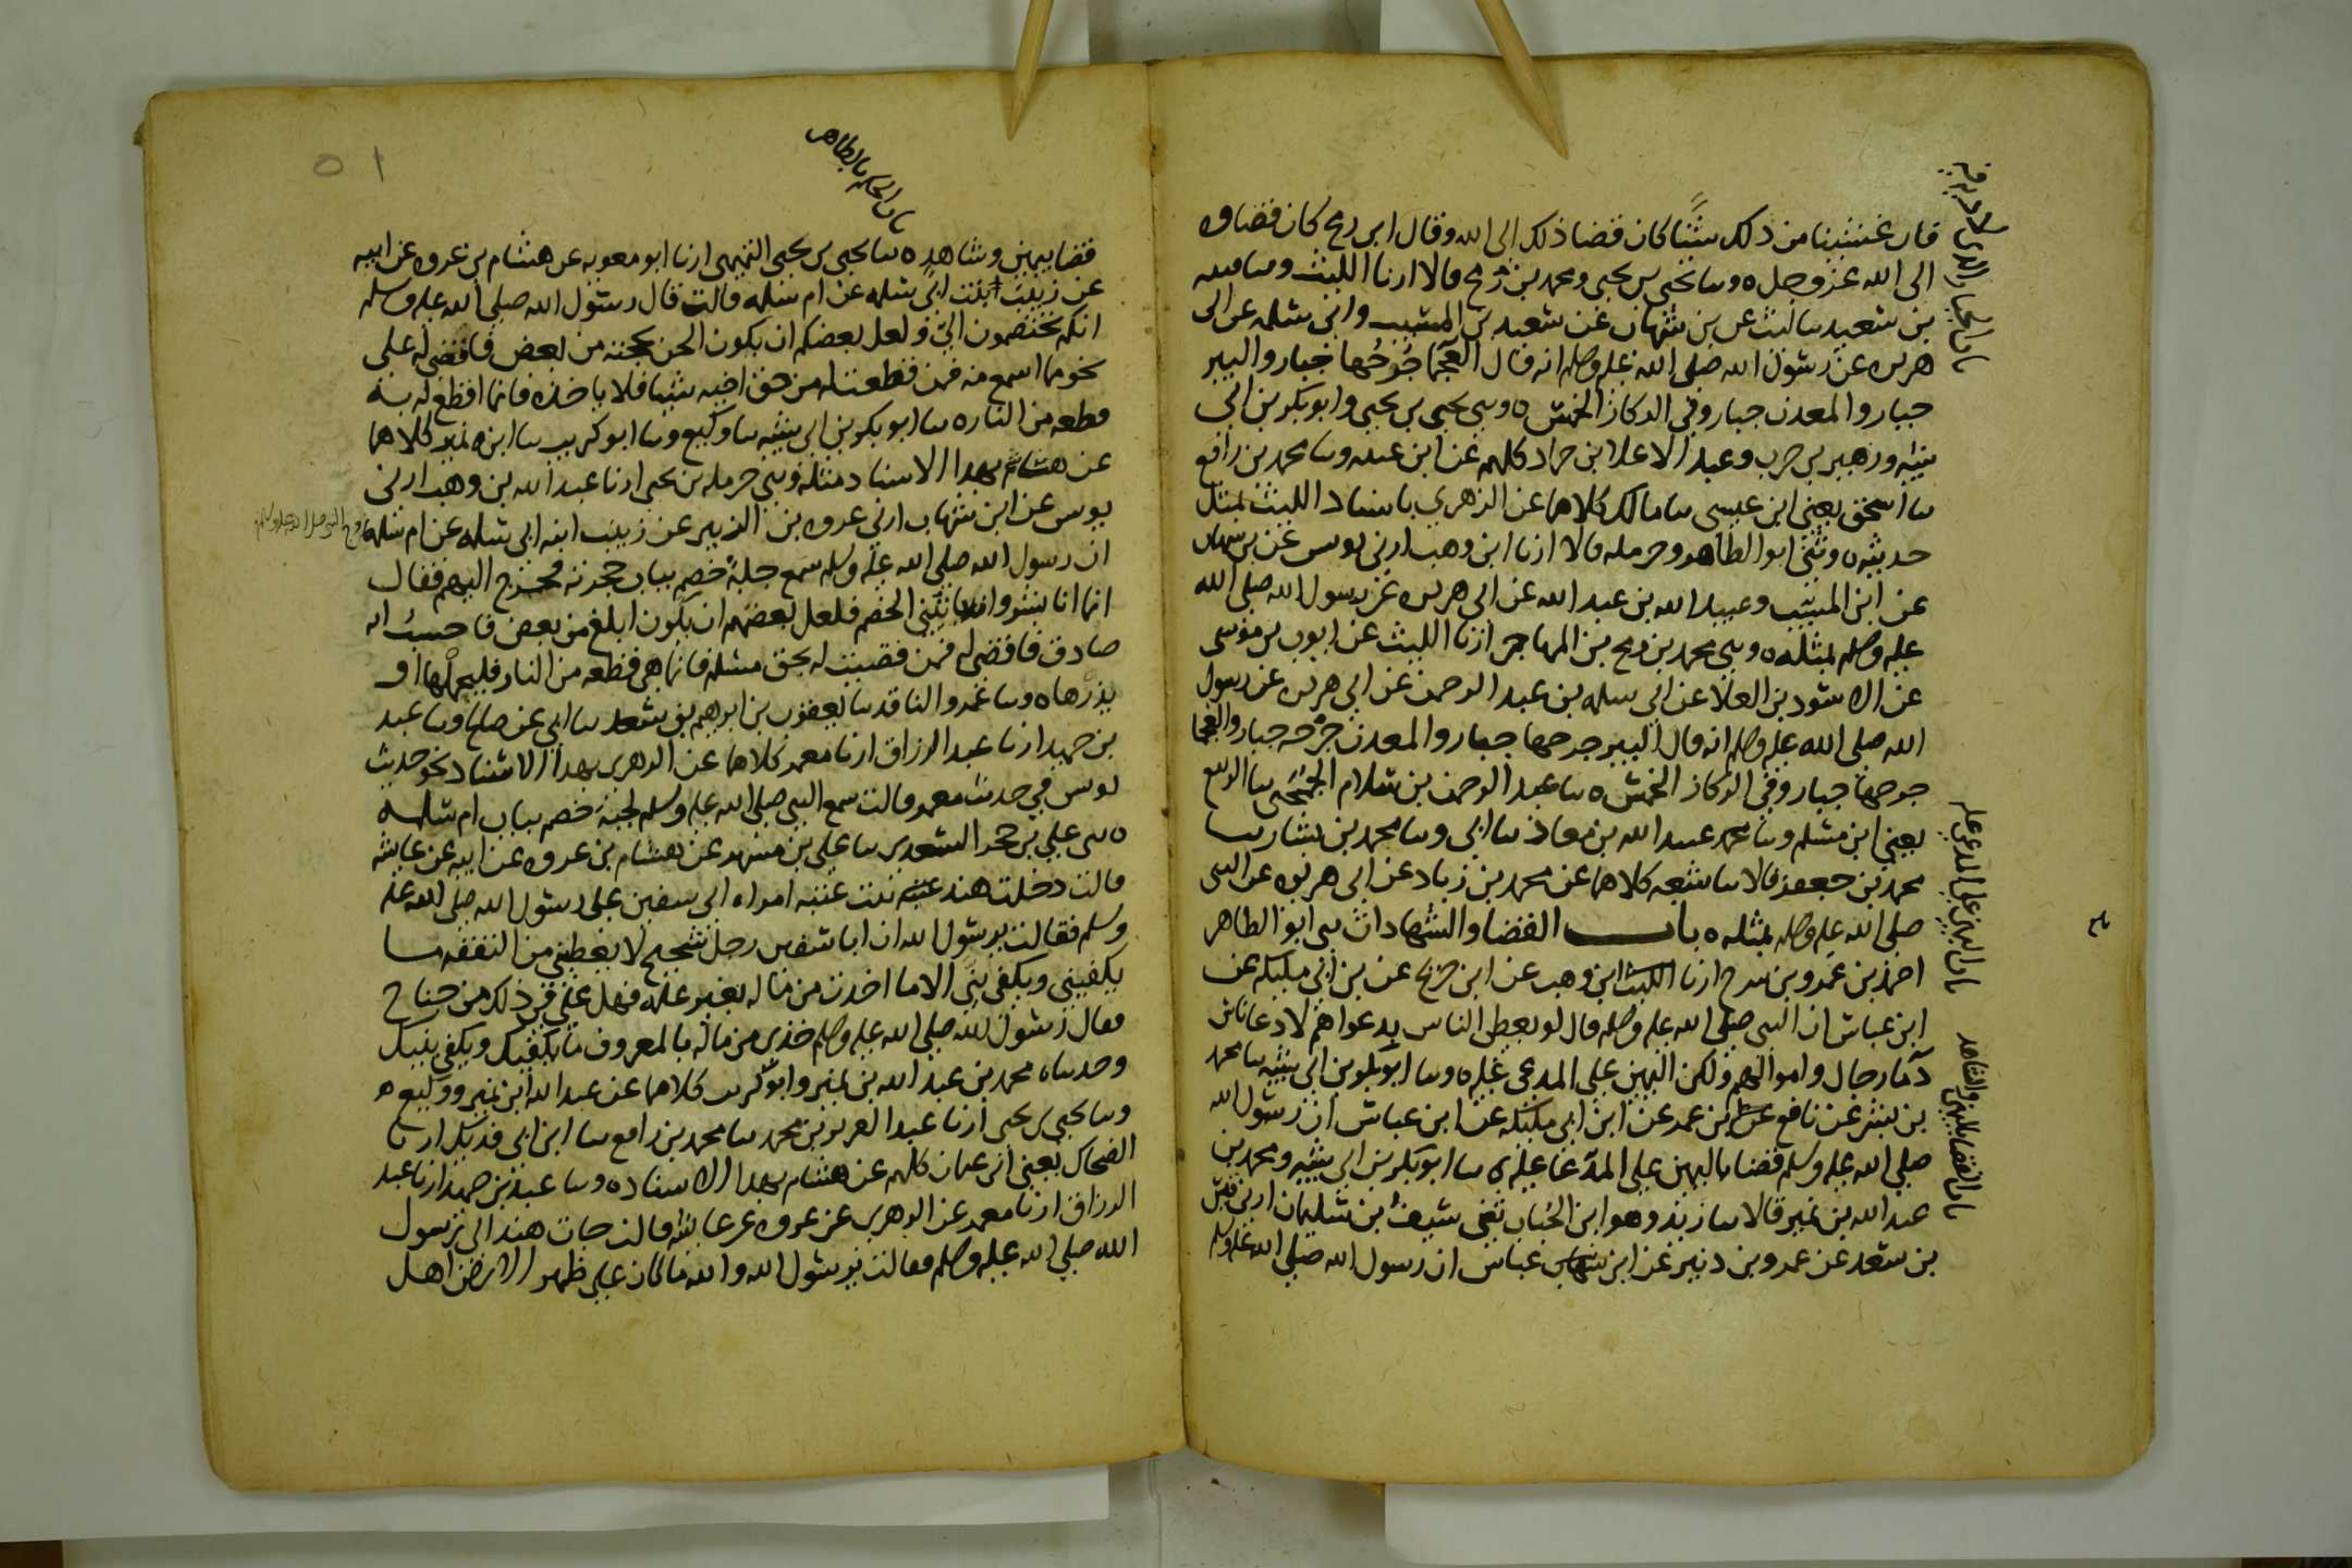 قال غشينا من ذلك شيئا كان قضا ذلك الى الله وقال ابن رمح كان قضاوه
الى الله عز وجل ه وسا يحيى بن يحيى ومحمد بن رمح قالا ارنا الليث وسا قتيبه
بن سعيد سا ليث عن بن شهاب عن سعيد بن المسيب وابي سلمه عن ابي
هريره عن رسول الله صلى الله عليه وسلم انه قال العجما جُرحُها جبار والبير
جبار والمعدن جبار وفي الركاز الخمس ه وسى يحيى بن يحيى وابو بكر بن ابي
شيبه وزهير بن حرب وعبد الاعلا ابن حماد كلهم عن ابن عيينه وسا محمد بن رافع
سا اسحق يعني ابن عيسى سا مالك كلاهما عن الزهري باسناد الليث بمثل
حديثه ه وسى ابو الطاهر وحرمله قالا ارنا ابن وهب ارني يونس عن بن شهاب
عن ابن المسيب وعبيد الله بن عبد الله عن ابي هريره عن رسول الله صلى الله
عليه وسلم بمثله ه وسى محمد بن رمح بن المهاجر ارنا الليث عن ايوب بن موسى
عن الاسود بن العلا عن ابي سلمه بن عبد الرحمن عن ابي هريره عن رسول
الله صلى الله عليه وسلم انه قال البير جرحها جبار والمعدن جرحه جبار والعجما
جرحها جبار وفي الركاز الخمس ه سا عبد الرحمن بن سلام الجُمَحى سا الربيع
يعني ابن مسلم وسا محمد عبيد الله بن معاذ سا ابي وسا محمد بن بشار سا
محمد بن جعفر قالا سا شعبه كلاهما عن محمد بن زياد عن ابي هريره عن النبي
صلى الله عليه وسلم بمثله ه باب القضا والشهادات سى ابو الطاهر
احمد بن عمرو بن سرح ارنا الليث ابن وهب عن ابن جريج عن بن ابي مليكه عن
ابن عباس ان النبي صلى الله عليه وسلم قال لو يعطى الناس بدعواهم لادعا ناس
دما رجال واموالهم ولكن اليمين على المدعى عليه ه وسا ابو بكر بن ابي شيبه سا محمد
بن بشر عن نافع عن بن عمر عن ابن ابي مليكه عن ابن عباس ان رسول الله
صلى الله عليه وسلم قضا باليمين على المدعا عليه ه سا ابو بكر بن ابي شيبه ومحمد بن
عبد الله بن نمير قالا سا زيد وهو ابن الحُباب سى سيف بن سليمان ارني قيس
بن سعد عن عمرو بن دينر عن ابن عباس ان رسول الله صلى الله عليه وسلم
باب اليمين على المدعى عليه
باب القضا باليمين والشاهد
باب الحكم بالظاهر
٥١
قضا بيمين وشاهد ه سا يحيى بن يحيى التميمي ارنا ابو معويه عن هشام بن عروه عن ابيه
عن زينب بنت ابي سلمه عن ام سلمه قالت قال رسول الله صلى الله عليه وسلم
انكم تختصمون الي ولعل بعضكم ان يكون الحن بحجته من بعض فاقضي له على
نحو مما اسمع منه فمن قطعت له من حق اخيه شيا فلا ياخذه فانما اقطع له به
قطعه من النار ه سا ابو بكر بن ابي شيبه سا وكيع وسا ابو كريب سا ابن نمير كلاهما
عن هشام بهدا الاسناد مثله وسى حرمله بن يحيى ارنا عبد الله بن وهب ارني
يونس عن ابن شهاب ارني عروه بن الزبير عن زينب ابنه ابي سلمه عن ام سلمه
زوج النبي صلى الله عليه وسلم
ان رسول الله صلى الله عليه وسلم سمع جلبةُ خصم بباب حجرته فخرج اليهم فقال
انما انا بشر وانه ياتيني الخصم فلعل بعضهم ان يكون ابلغ من بعض فاحسبُ انه
صادق فاقضي له فمن قضيت له بحق مسلم فانما هي قطعه من النار فليحملها او
يذرها ه وسا عمرو الناقد سا يعقوب بن ابراهيم بن سعد سا ابي عن صالح وسا عبد
بن حميد ارنا عبد الرزاق ارنا معمر كلاهما عن الزهري بهدا الاسناد نحو حديث
يونس في حديث معمر قالت سمع النبي صلى الله عليه وسلم لجبة خصم بباب ام سلمه
ه سى علي بن حجر السعدي سا علي بن مسهر عن هشام بن عروه عن ابيه عن عايشه
قالت دخلت هند بنت عتبه امراه ابي سفين على رسول الله صلى الله عليه
وسلم فقالت يرسول الله ان ابا سفين رجل شحيح لا يعطيني من النفقه ما
يكفيني ويكفي بني الا ما اخذت من ماله بغير علمه فهل علي في ذلك من جناح
فقال رسول الله صلى الله عليه وسلم خذي من ماله بالمعروف ما يكفيك ويكفي بنيك
وحدساه محمد بن عبد الله بن نمير وابو كريب كلاهما عن عبد الله ابن نمير ووكيع ه
وسا يحيى بن يحيى ارنا عبد العزيز بن محمد سا محمد بن رافع سا ابن ابي فديك ارنا
الضحاك يعني ابن عثمان كلهم عن هشام بهدا الاسناد ه وسا عبد بن حميد ارنا عبد
الرزاق ارنا معمر عن الزهري عن عروه عن عايشه قالت جات هند الى رسول
الله صلى الله عليه وسلم فقالت يرسول الله والله ما كان على ظهر الارض اهل